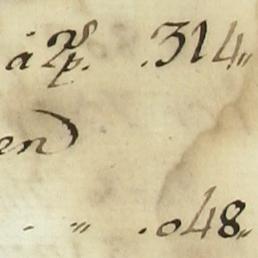 à 28/p. . 314 "
en
. " . 048 "